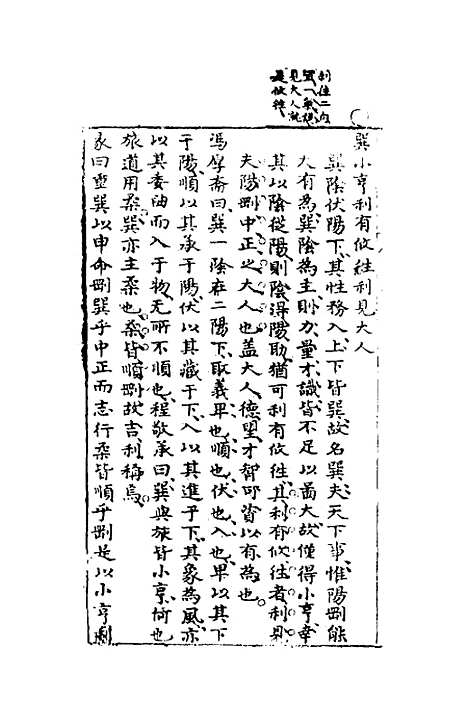 利往二句
一氣說
見大人就
是攸往
巽小亨利有攸往利見大人
巽陰伏陽下其性務入上下皆巽故名巽夫天下事惟陽剛能
大有為巽陰為主則力量才識皆不足以圖大故僅得小亨幸
其以陰從陽則陰得陽助猶可利有攸往其利有攸往者利見
夫陽剛中正之大人也蓋大人德望才智可資以有為也
馮厚齋曰巽一陰在二陽下取義卑也順也伏也入也卑以其下
于陽順以其承于陽伏以其藏于下入以其進于下其象為風亦
以其委曲而入于物无所不順也程敬承曰巽與旅皆小亨何也
旅道用柔巽亦主柔也柔皆順剛故吉利稱焉
彖曰重巽以申命剛巽乎中正而志行柔皆順乎剛是以小亨利